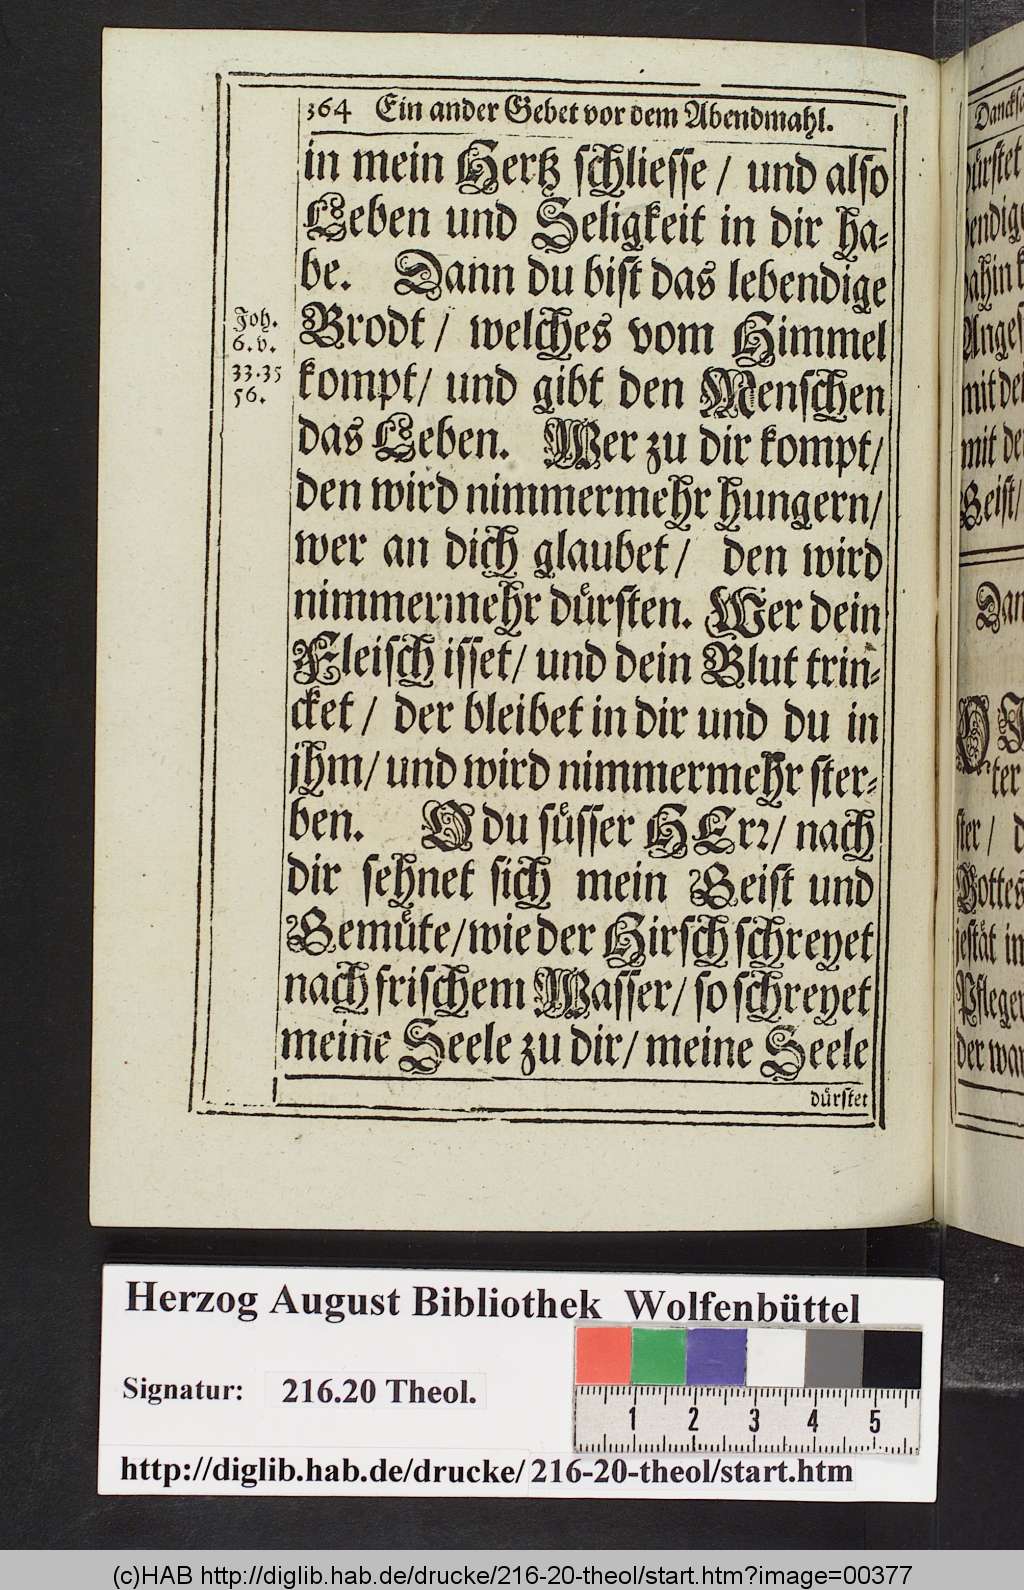 364 Ein ander Gebet vor dem Abendmahl.
in mein Hertz schliesse / und also
Leben und Seligkeit in dir ha-
be. Dann du bist das lebendige
Brodt / welches vom Himmel
kompt / und gibt den Menschen
das Leben. Wer zu dir kompt /
den wird nimmermehr hungern /
wer an dich glaubet / den wird
nimmermehr dürsten. Wer dein
Fleisch isset / und dein Blut trin-
cket / der bleibet in dir und du in
jhm / und wird nimmermehr ster-
ben. O du süsser HErr / nach
dir sehnet sich mein Geist und
Gemüte / wie der Hirsch schreyet
nach frischem Wasser / so schreyet
meine Seele zu dir / meine Seele
dürstet
Joh.
6. v.
33.35
56.
dürstet
mit
mit
Geist /
ster /
Gottes
jestät in
der
Herzog August Bibliothek Wolfenbüttel
Signatur: 216.20 Theol.
1 2 3 4 5
http://diglib.hab.de/drucke/216-20-theol/start.htm
(c)HAB http://diglib.hab.de/drucke/216-20-theol/start.htm?image=00377